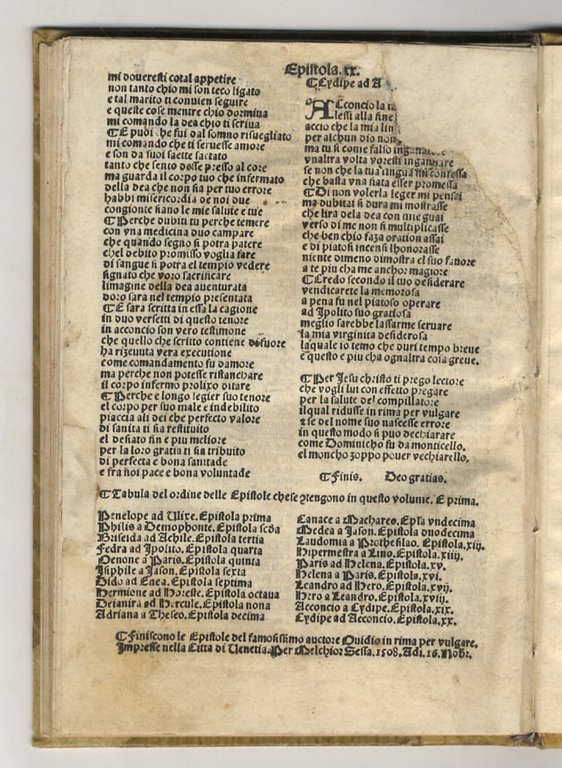 mi doueresti cotal appetire
non tanto chio mi son teco ligato
e tal marito ti conuien seguire
e queste cose mentre chio dormiua
mi comando la dea chio ti scriua
E puoi che fui dal somno risuegliato
mi comando che ti seruesse amore
e son da suoi saette factato
tanto che sento dosse presso al core
ma guarda il corpo tuo che infermato
della dea che non sia per tuo errore
habbi misericordia de noi due
congionte siano le mie salute e tue
Perche dubiti tu perche temere
con vna medicina duo campare
che quando segno si potra patere
chel debito promisso voglia fare
di sangue si potra el tempio vedere
signato che voro sacrificare
limagine della dea auenturata
doro sara nel tempio presentata
E sara scritta in essa la cagione
in duo versetti di questo tenore
in acconcio son vero testimone
che quello che scritto contiene di fuore
ha riceuuta vera executione
come comandamento fu damore
ma perche non potesse ristanchare
il corpo infermo prolixo ditare
Perche e longo legier suo tenore
el corpo per suo male e indebilito
piaccia ali dei che perfecto valore
di sanita ti sia restituito
el desiato fin e piu meliore
per la loro gratia ti sia tribuito
di perfecta e bona sanitade
e fra noi pace e bona voluntade
Epistola.xx.
Cydipe ad A
Acconcio la
lessi alla fine
accio che la mia lin
per alchun dio non
ma tu si come falso
vnaltra volta voresti ingannare
se non che la tua lingua mi confessa
che basta vna fiata esser promessa
Di non volerla leger mi pensai
ma dubitai si dura mi mostrasse
che lira dela dea con mie guai
verso di me non si multiplicasse
che ben chio faza oration assai
e di piatosi incensi lhonorasse
niente dimeno dimostra el suo fauore
a te piu cha me anchor magiore
Credo secondo il tuo desiderare
vendicarete la memorosa
a pena fu nel piatoso operare
ad Ipolito suo gratiosa
meglio sarebbe lassarme seruare
la mia virginita desiderosa
laquale io temo che duri tempo breue
e questo e piu cha ognaltra cosa greue.
Per Jesu christo ti prego lectore
che vogli lui con effetto pregare
per la salute del compillatore
ilqual ridusse in rima per vulgare
e se del nome suo nascesse errore
in questo modo si puo dechiarare
come Dominicho fu da monticello.
el moncho zoppo pouer vechiarello.
Finis. Deo gratias.
Tabula del ordine delle Epistole che se 9tengono in questo volume. E prima.
Penelope ad Vlixe. Epistola prima
Philis a Demophonte. Epistola scda
Briseida ad Achile. Epistola tertia
Fedra ad Ipolito. Epistola quarta
Oenone a Paris. Epistola quinta
Isiphile a Jason. Epistola sexta
Dido ad Enea. Epistola septima
Hermione ad Horeste. Epistola octaua
Deianira ad Hercule. Epistola nona
Adriana a Theseo. Epistola decima
Canace a Machareo. Epsa vndecima
Medea a Jason. Epistola duodecima
Laudomia a Prothesilao. Epistola.xiij.
Hipermestra a Lino. Epistola.xiiij.
Paris ad Helena. Epistola.xv.
Helena a Paris. Epistola.xvi.
Leandro ad Hero. Epistola.xvij.
Hero a Leandro. Epistola.xviij.
Acconcio a Cydipe. Epistola.xix.
Cydipe ad Acconcio. Epistola.xx.
Finiscono le Epistole del famosissimo auctore Ouidio in rima per vulgare.
Impresse nella Citta di Uenetia. Per Melchior Sessa. 1508. Adi. 16. Nobr.